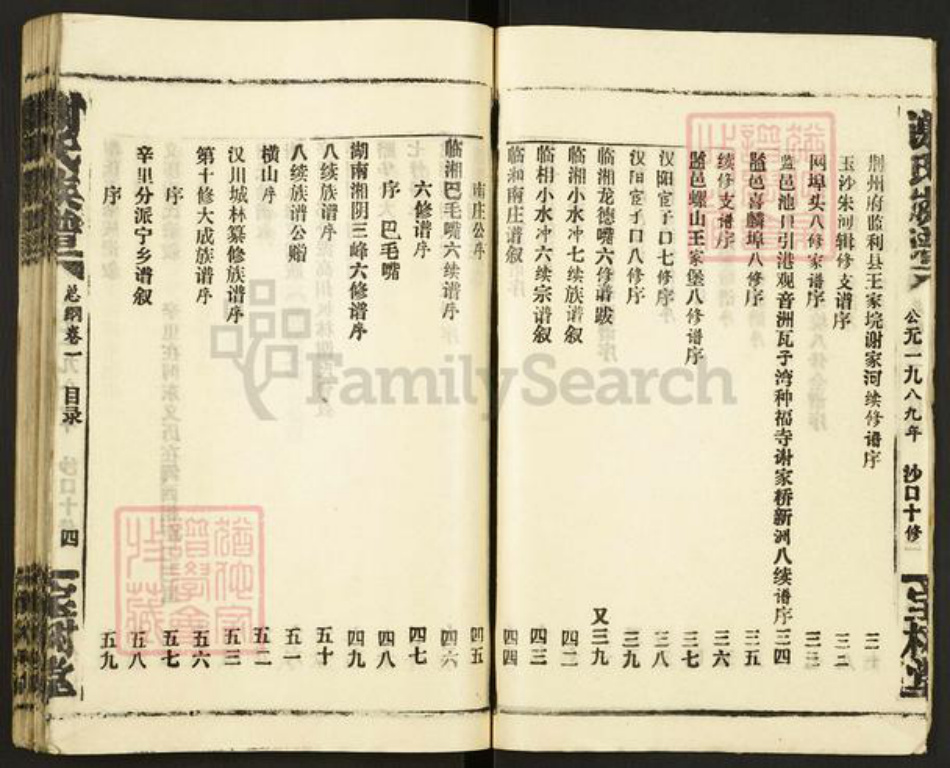 谢氏族谱
公元一九八九年
沙口十修
宝树堂
荆州府监利县王家垸谢家河续修谱序
玉沙朱河辑修支谱序 三二
网埠头八修家谱序 三三
监邑池口引港观音洲瓦子湾种福寺谢家桥新洲八续谱序 三四
监邑喜麟埠八修序 三五
续修支谱序 三六
监邑螺山王家堡八修谱序 三七
汉阳宦子口七修序 三八
汉阳宦子口八修序 三九
临湘龙德嘴六修谱跋 又三九
临湘小水冲七续族谱叙 四二
临相小水冲六续宗谱叙 四三
临湘南庄谱叙 四四
南庄公序 四五
临湘巴毛嘴六续谱序 四六
六修谱序 四七
序 巴毛嘴 四八
湖南湘阴三峰六修谱序 四九
八续族谱序 五十
八续族谱公赠 五一
横山序 五二
汉川城林纂修族谱序 五三
第十修大成族谱序 五六
序 五七
辛里分派宁乡谱叙 五八
序 五九
谢氏族谱
总纲卷一
目录
沙口十修
四
宝树堂
FamilySearch